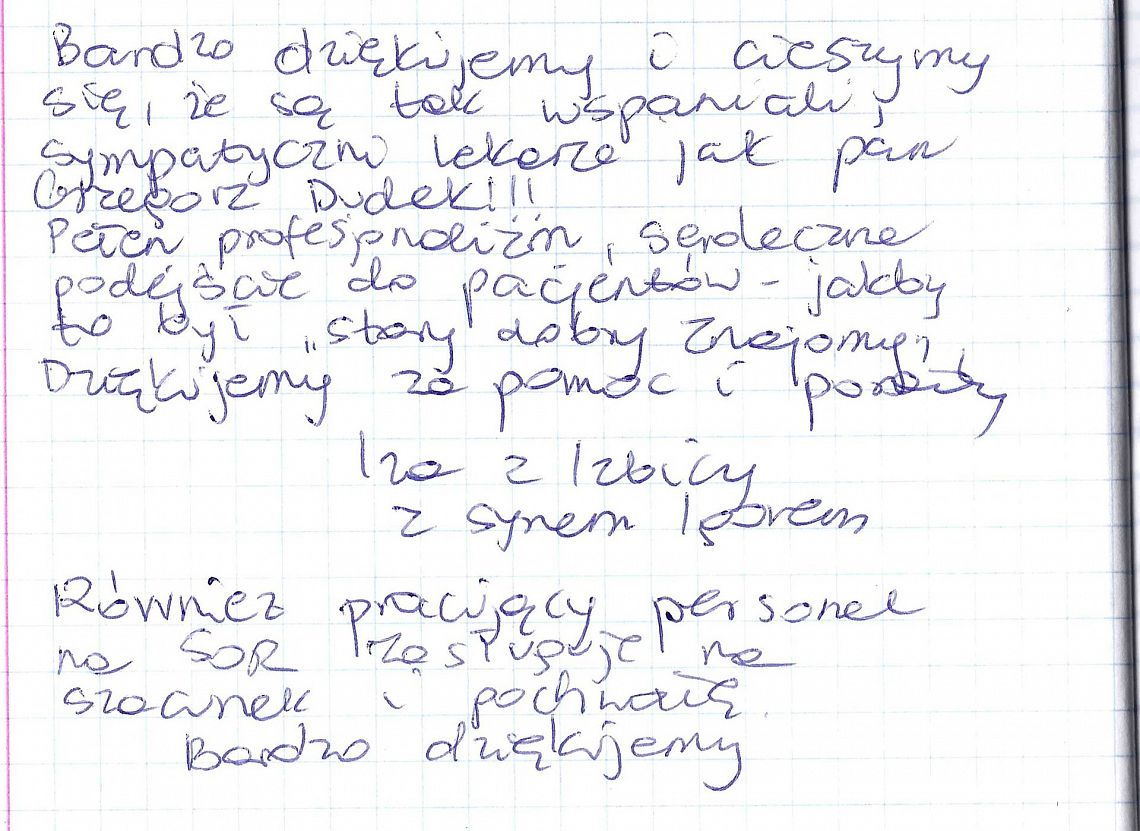 Bardzo dziękujemy i cieszymy
się, że są tak wspaniali,
sympatyczni lekarze jak pan
Grzegorz Dudek!!!
Pełen profesjonalizm, serdeczne
podejście do pacjentów - jakby
to był „stary dobry znajomy",
Dziękujemy za pomoc i porady
Iza z Izbicy
z synem Igorem
Również pracujący personel
na SOR zasługuje na
szacunek i pochwałę.
Bardzo dziękujemy